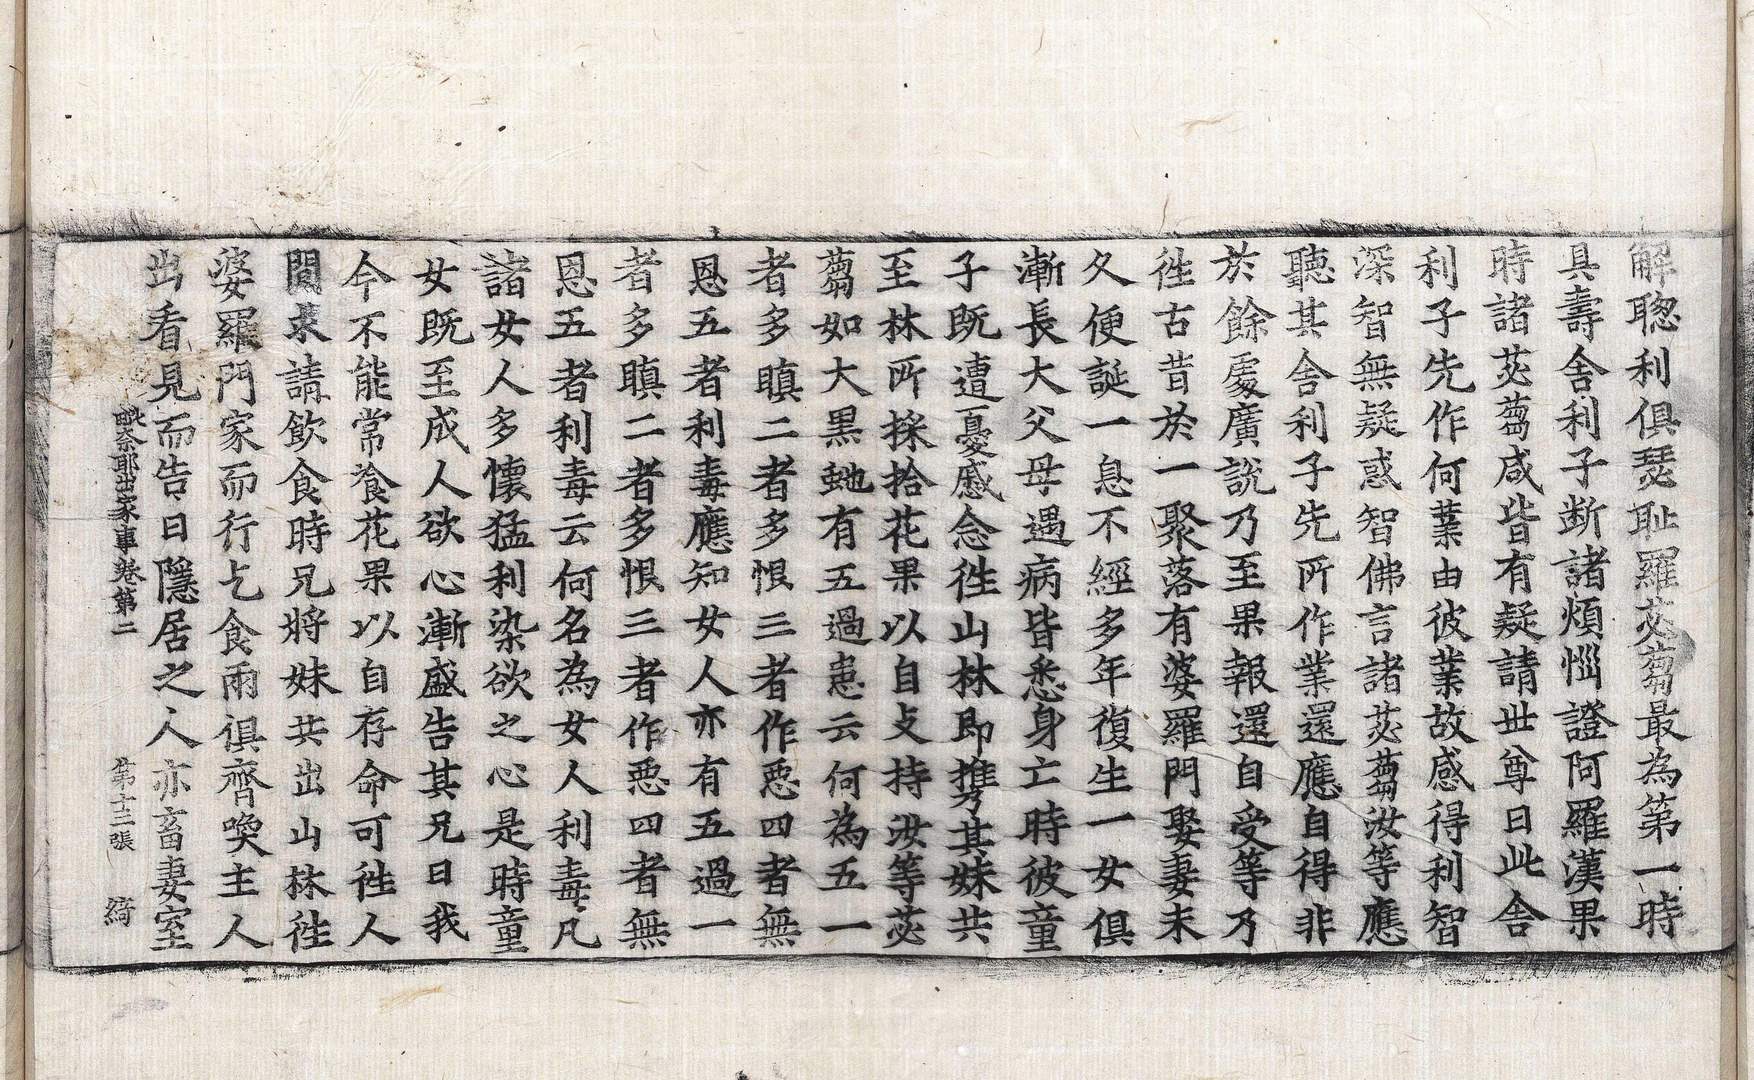 解聦利俱瑟耻羅苾蒭最為第一時
具壽舎利子断諸煩惱證阿羅漢果
時諸苾蒭咸皆有疑請世尊曰此舎
利子先作何業由彼業故感得利智
深智無疑惑智佛言諸苾蒭汝等應
聽其舎利子先所作業還應自得非
於餘處廣說乃至果報還自受等乃
徃古昔於一聚落有婆羅門娶妻未
久便誕一息不經多年復生一女俱
漸長大父母遇病皆悉身亡時彼童
子既遭憂慼念徃山林即携其妹共
至林所採拾花果以自支持汝等苾
蒭如大黒虵有五過患云何為五一
者多瞋二者多恨三者作惡四者無
恩五者利毒應知女人亦有五過一
者多瞋二者多恨三者作惡四者無
恩五者利毒云何名為女人利毒凡
諸女人多懷猛利染欲之心是時童
女既至成人欲心漸盛告其兄曰我
今不能常飡花果以自存命可徃人
間求請飲食時兄將妹共出山林徃
婆羅門家而行乞食兩俱齊喚主人
出看見而告曰隱居之人亦畜妻室
毗奈耶出家事卷第二 第十三張 綺